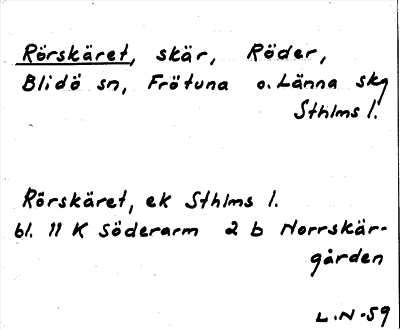 Rörskäret, skär, Röder,
Blidö sn, Frötuna o. Länna skg
Sthlms l.
Rörskäret, ek Sthlms l.
bl. 11 K Söderarm 2 b Norrskär-
gården
L.N-59